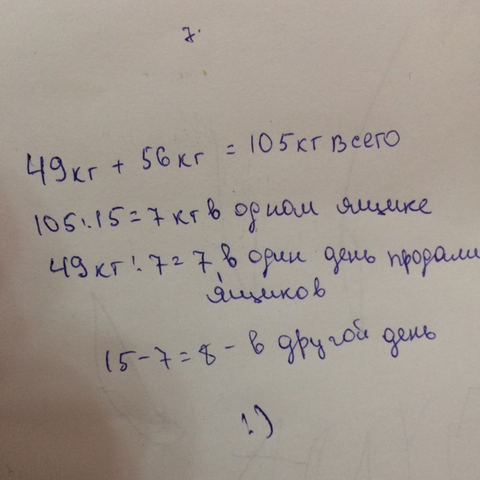 7.
49кг + 56кг = 105кг всего
105:15=7 кг в одном ящике
49кг:7=7 в один день продали
ящиков
15-7=8 - в другой день
:)